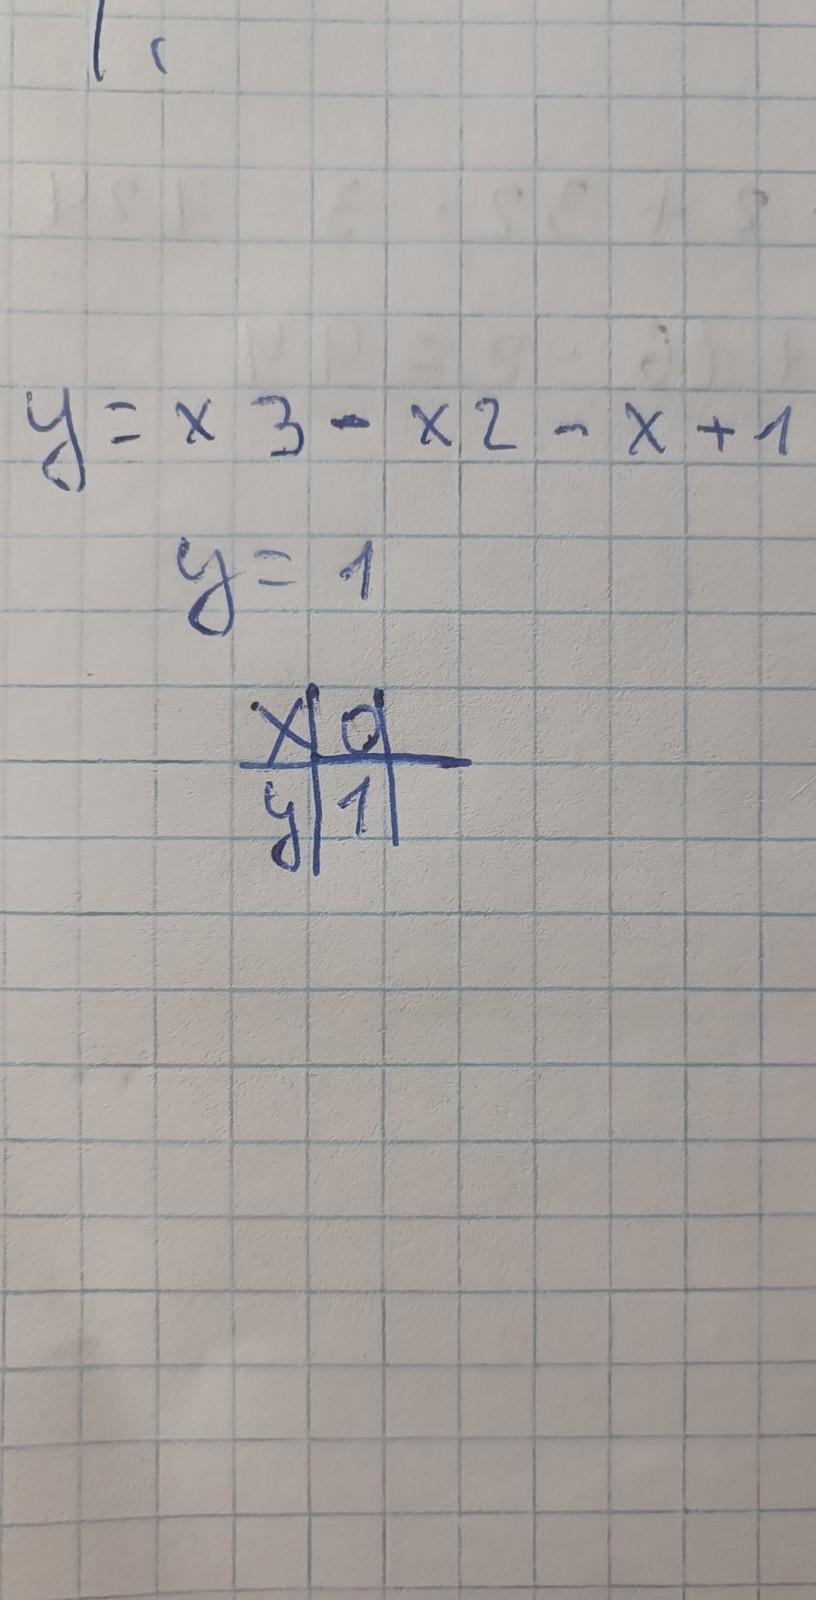 y = x 3 - x 2 - x + 1
y = 1
x | 0 |
y | 1 |